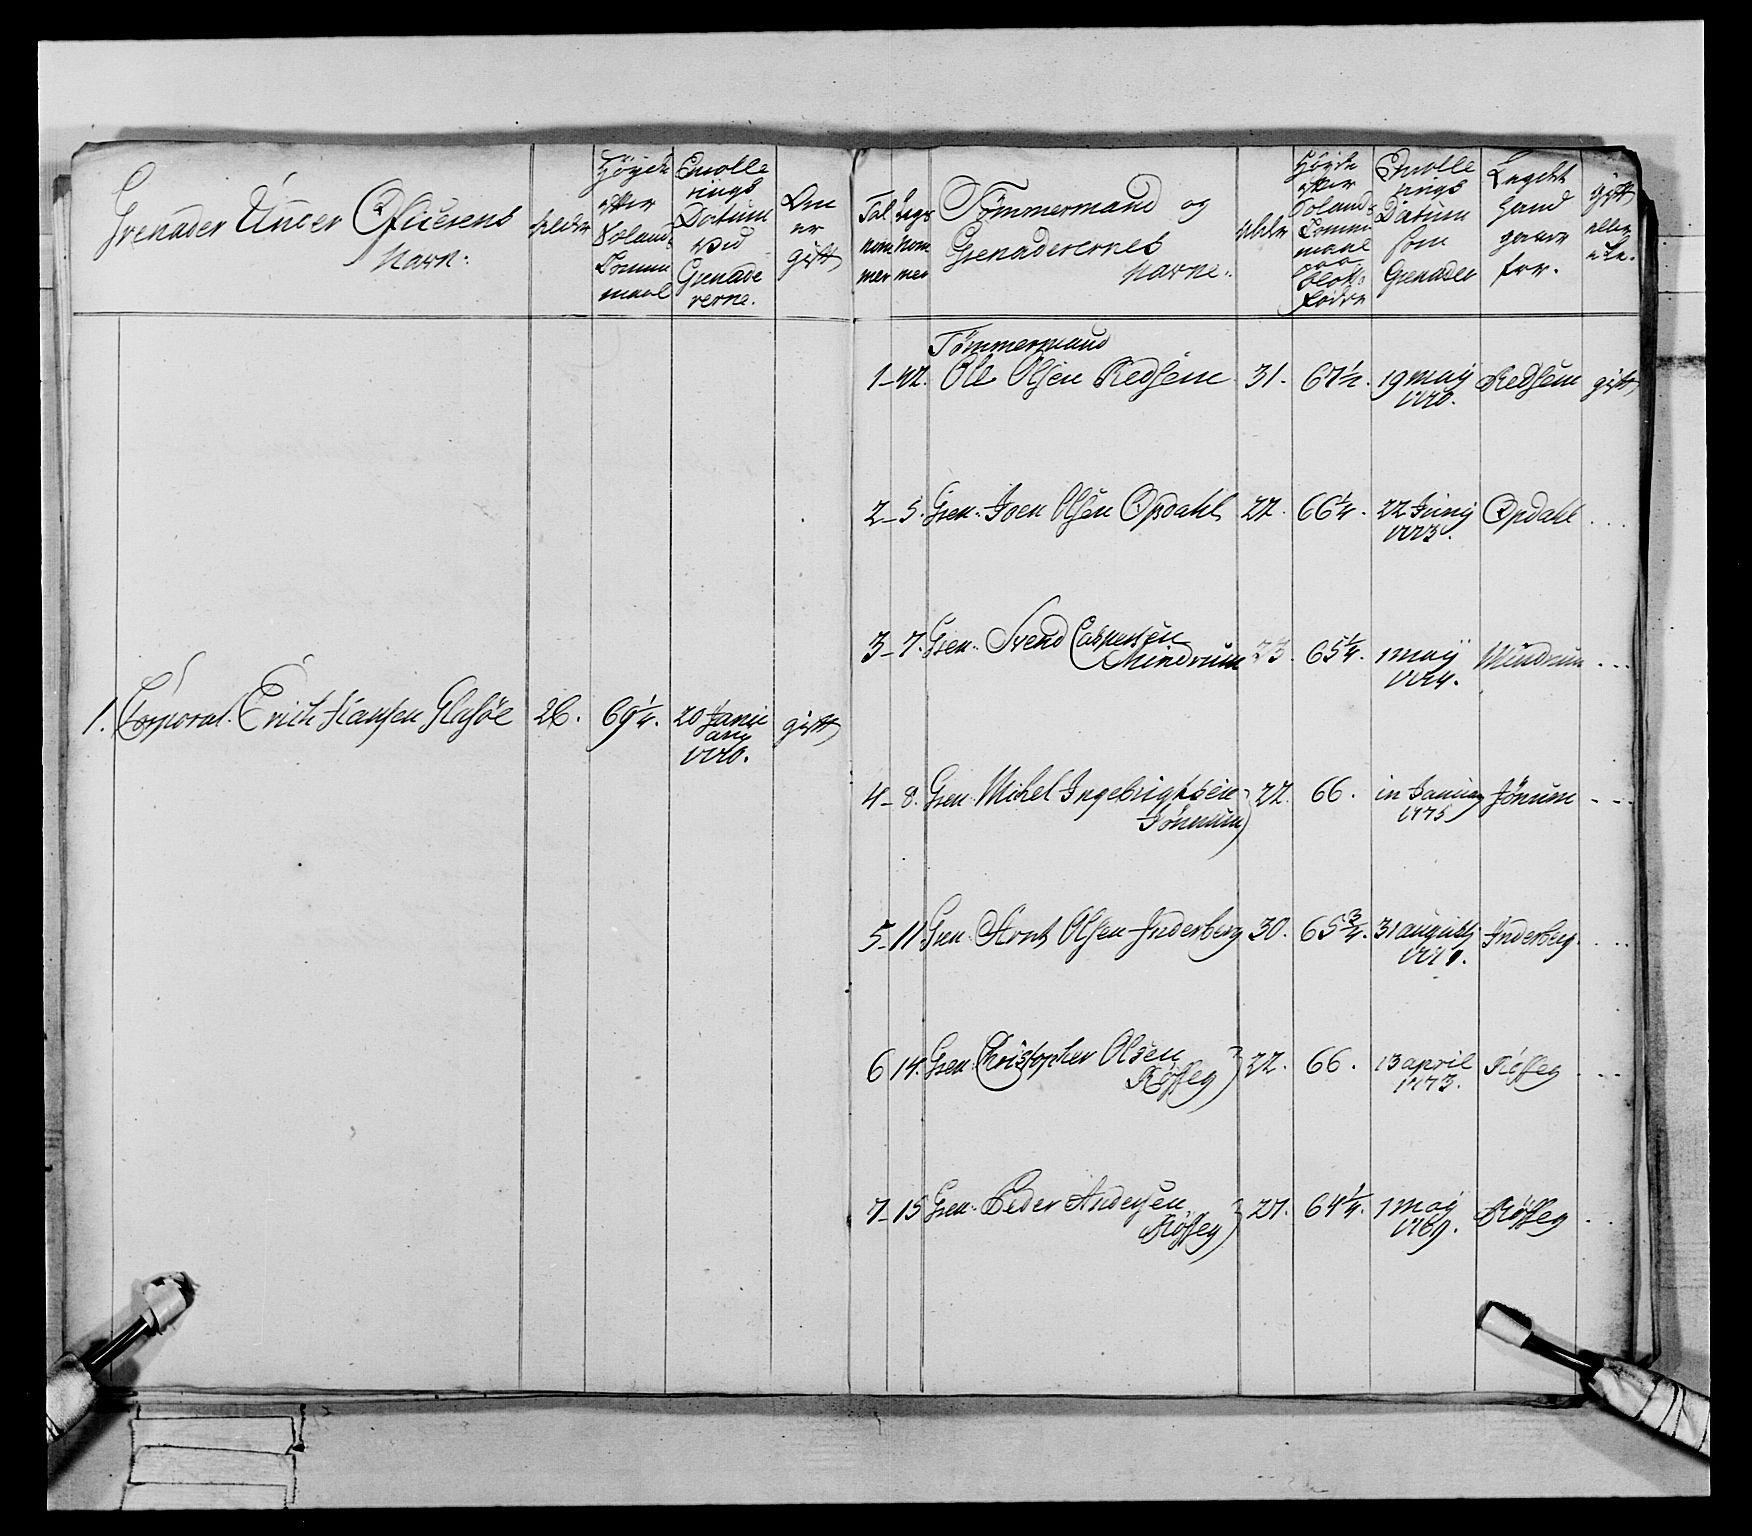 Grenader Under Officerens
Navn.
Alder
Höyde
efter
Soland
Tomme
maal
Enrolle
rings
Datum
ved
Grenade
rerne.
Om
er
gift
1. Corporal. Erich Hansen Glasöe 26. 69 1/4. 20 Janu
ary
1770.
gift
Tal
num
mer
Legs
num
mer
Tømmermand og
Grenaderernes
Navne.
Alder
Höyde
efter
Solands
Tomme
maal
paa
blotte
födder
Enrolle
rings
Datum
som
Grenader
Legdet
hand
giører
for.
gift
eller
eke.
Tømmermand
1 - 42. Ole Olsen Redsem 31. 67 1/2. 19 may
1770.
Redsem gift
2 - 5. Gren. Joen Olsen Opdahl 22. 66 1/4. 22 Juny
1773.
Opdahl ....
3 - 7. Gren. Svend Caspersen
Mindrum 23. 65 1/4. 1 may
1774.
Mindrum ...
4 - 8. Gren. Michel Ingebrigtsen
Jönnum 22. 66. in January
1775
Jönum - - -
5 - 11. Gren. Arnt Olsen Inderberg 30. 65 3/4. 31 augusty
Inderberg ...
6 14. Gren. Christopher Olsen
Röffeg 22. 66. 13 april
1773.
Röffeg ...
7 - 15 Gren. Peder Andersen
Röffeg 27. 64 1/4. 1 may
1769.
Röffeg ...